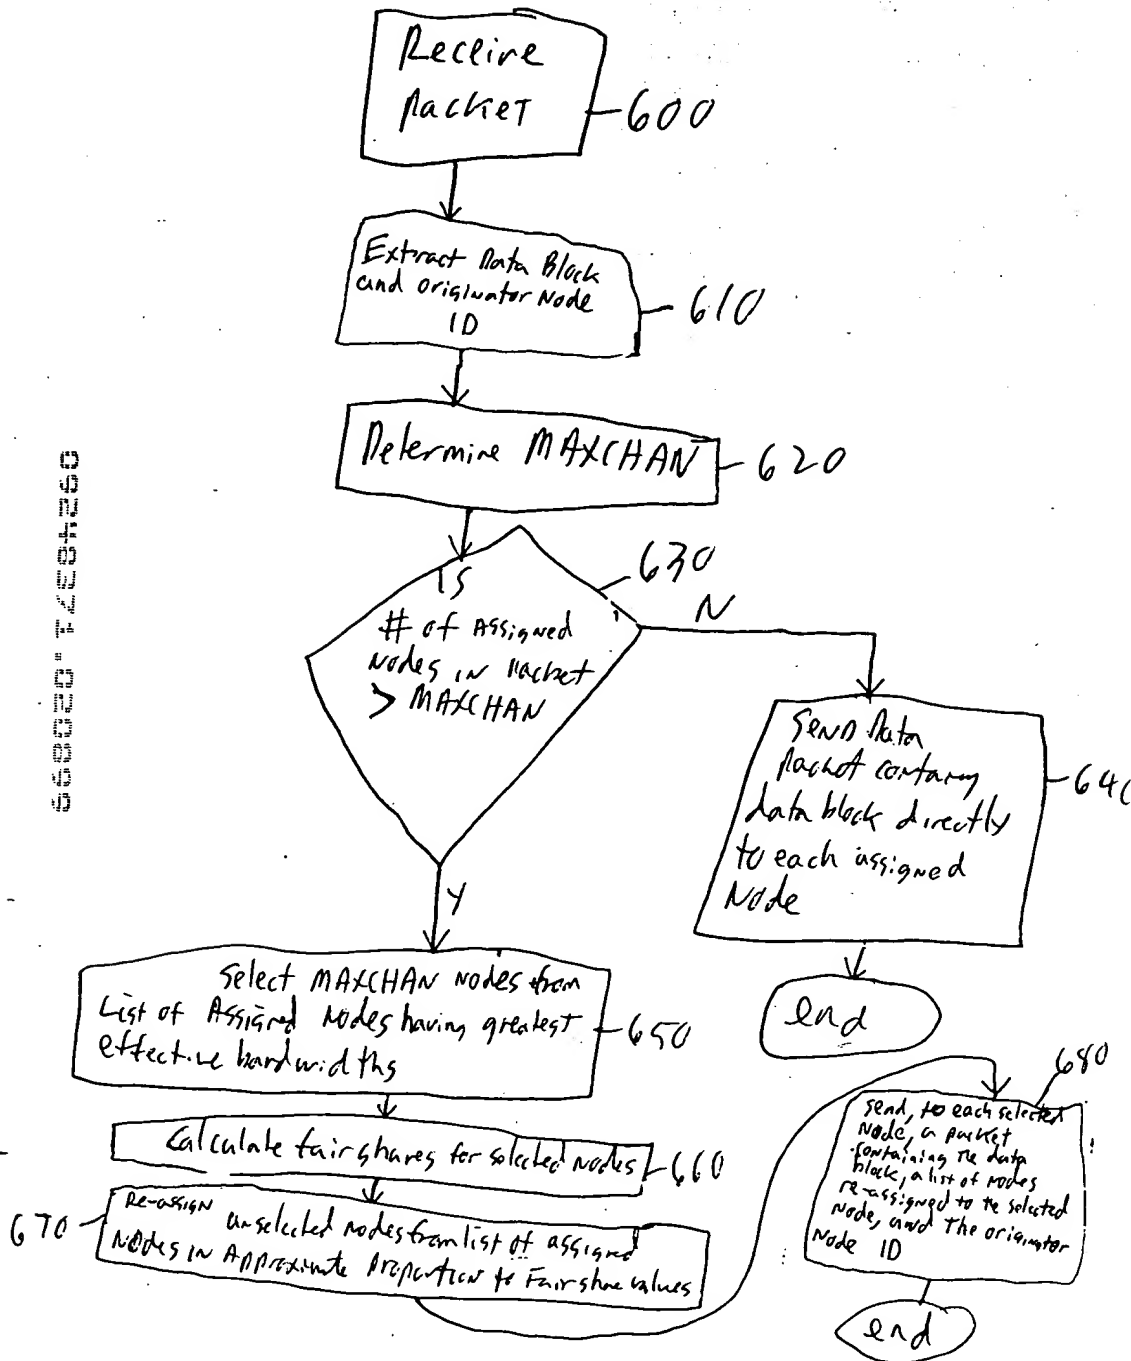 Receive
Packet
600
Extract Data Block
and originator Node
ID
610
Determine MAXCHAN
620
IS
# of Assigned
Nodes in Packet
> MAXCHAN
630
N
Send Data
Packet containg
data block directly
to each assigned
Node
640
end
Y
Select MAXCHAN Nodes from
List of Assigned Nodes having greatest
effective bandwidths
650
Calculate fair shares for selected nodes
660
Re-assign unselected nodes from list of assigned
Nodes in Approximate Proportion to Fairshare values
670
Send, to each selected
Node, a packet
containing the data
block, a list of nodes
re-assigned to the selected
Node, and the originator
Node ID
680
end